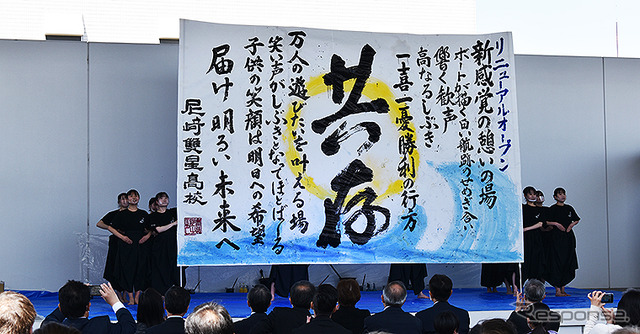 リニューアルオープン
新感覚の憩いの場
ボートが描く白い航跡のせめぎ合い
響く歓声
高なるしぶき
一喜一憂勝利の行方
共存
万人の遊びたいを叶える場
笑い声がしぶきとなってほとばしる
子供の笑顔は明日への希望
届け明るい未来へ
尼崎双星高校
Response.